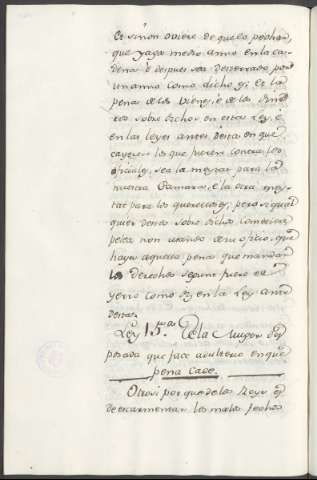 Et si non oviere de que lo pechar,
que yaga medio anno en la ca-
dena e despues sea desterrado por
un anno como dicho es; Et la
pena de los vienes, e de los dine-
ros sobre dichos en esta Ley, e
en las leyes antes desta en que
cayeren los que fueren contra los
oficiales, sea la meytat para la
nuestra Camara, e la otra mey-
tat para los querellosos, pero si qual
quier destos sobre dichos
pelea non usando de su oficio, que
haya aquella pena que mandan
los derechos segunt fuere el
yerro como diz en la Ley ante
desta.
Ley 15.a De la Muger des-
posada que face adulterio en que
pena cae.
Otrosi por que de los Reys es
de escarmentar los malos fechos